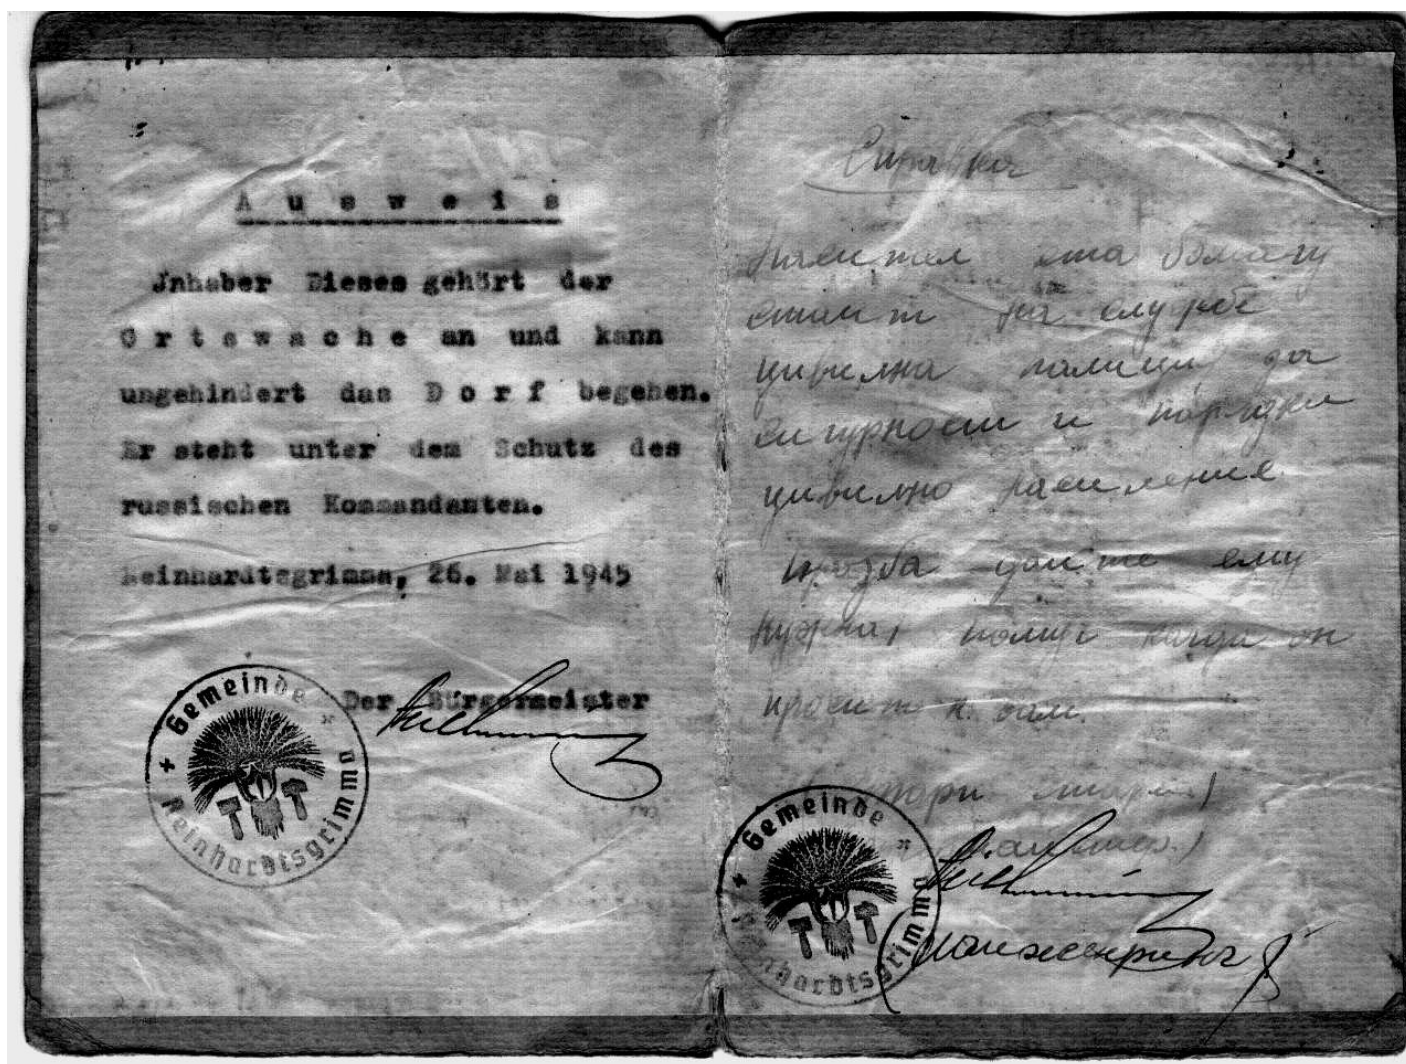 Ausweis
Jnhaber Dieses gehört der
Ortswache an und kann
ungehindert das Dorf begehen.
Er steht unter dem Schutz des
russischen Kommandanten.
Reinhardtsgrimma, 26. Mai 1945
Der Bürgermeister
Gemeinde Reinhardtsgrimma
Справка
ета бомагу
стаит на службе
цивилна палиция за
сигурност и порядки
цивилно население
прозба дайте ему
нужна, помощ когда он
просит к вам.
Gemeinde Reinhardtsgrimma